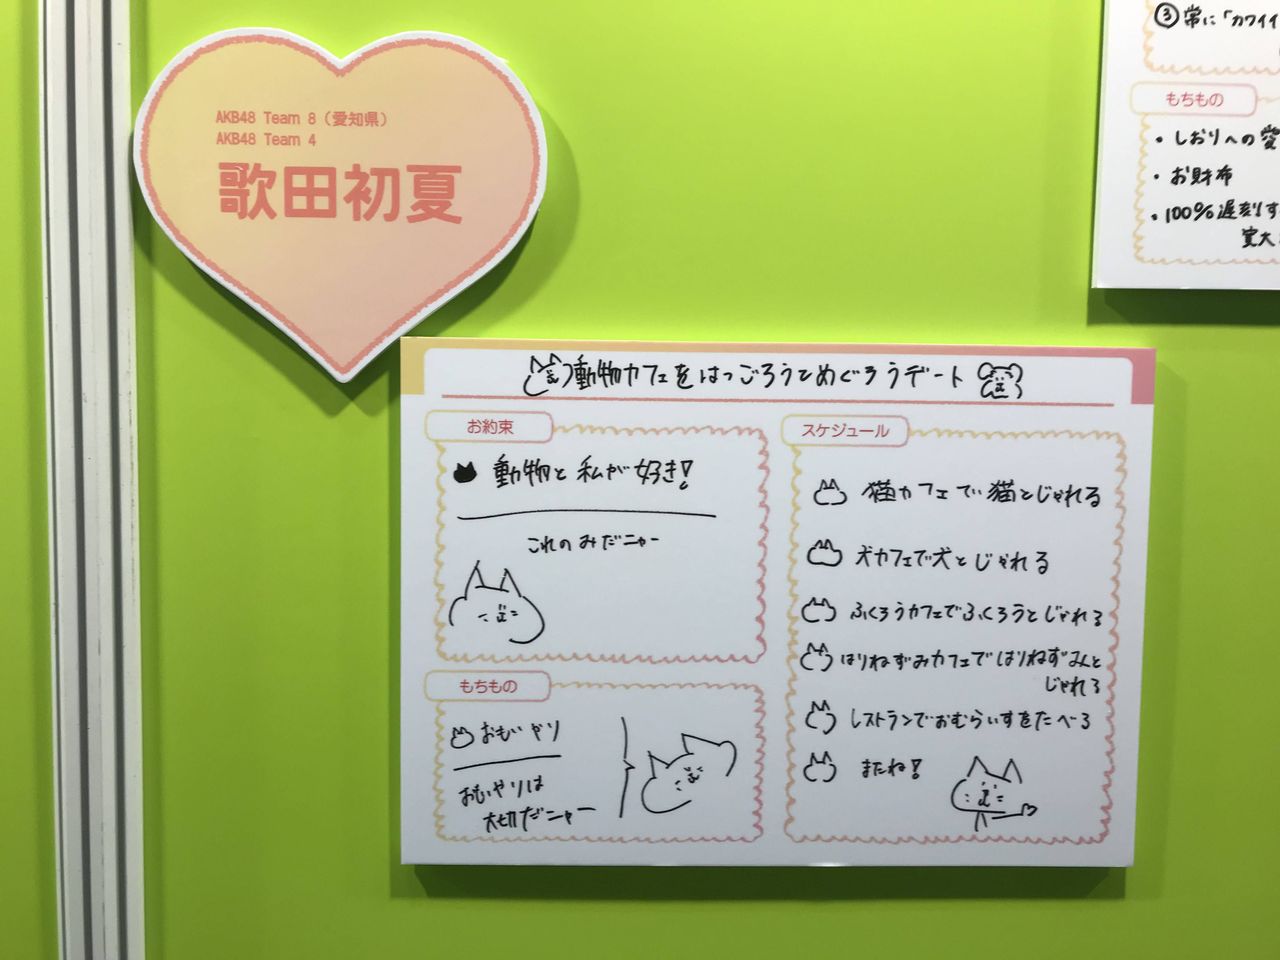 AKB48 Team 8（愛知県）
AKB48 Team 4
歌田初夏
動物カフェをはつごろうとめぐろうデート
お約束
動物と私が好き!
これのみだニャー
もちもの
おもいやり
おもいやりは
大切だニャー
スケジュール
猫カフェで猫とじゃれる
犬カフェで犬とじゃれる
ふくろうカフェでふくろうとじゃれる
はりねずみカフェではりねずみんと
じゃれる
レストランでおむらいすをたべる
またね!
③常に「カワイイ
もちもの
・しおりへの愛
・お財布
・100%遅刻す